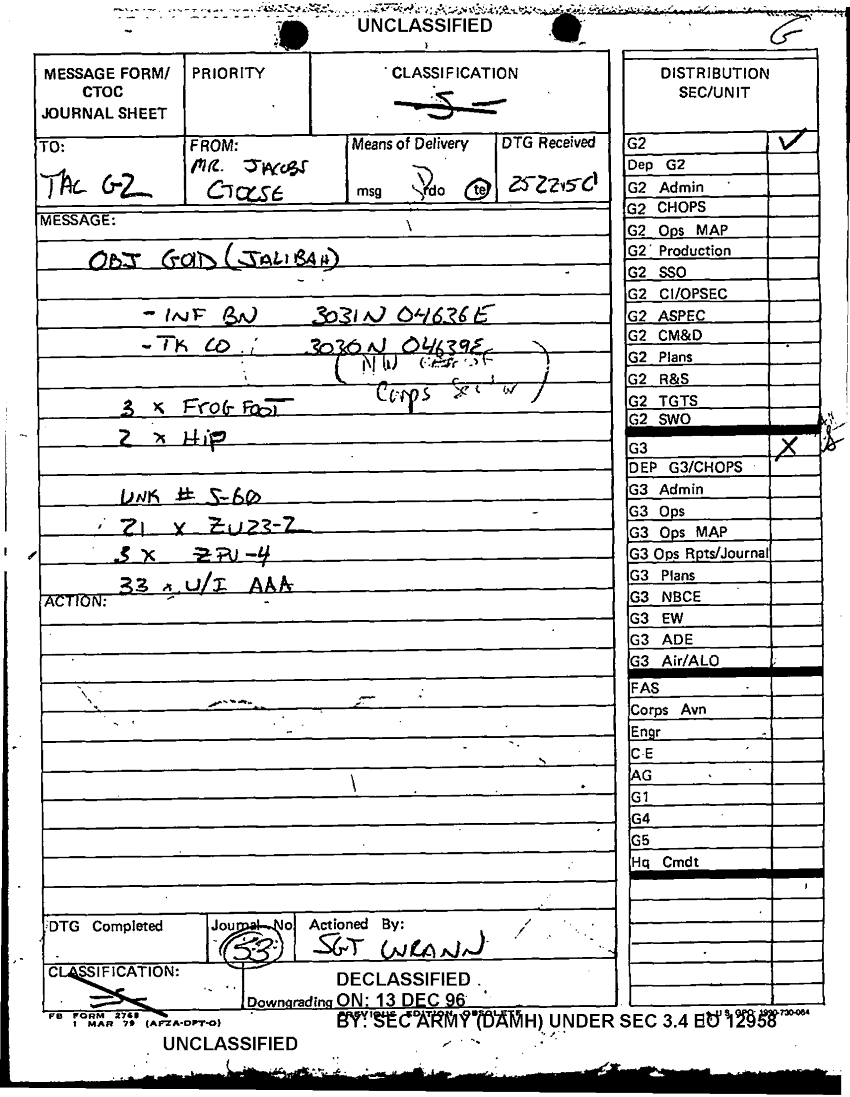 UNCLASSIFIED
G
MESSAGE FORM/
CTOC
JOURNAL SHEET
PRIORITY
CLASSIFICATION
S
TO:
TAC G-2
FROM:
MR. JACOBS
CTOCSE
Means of Delivery
msg rdo te
DTG Received
MESSAGE:
OBJ GOLD (JALIBAH)
- INF BN 3031N 04636E
- TK CO 3030N 04639E
(NW OF
Corps Sector)
3 x FROGFOOT
2 x HIP
UNK # S-60
21 x ZU23-2
3 x ZPU-4
33 x U/I AAA
ACTION:
DTG Completed
Journal No.
53
Actioned By:
SGT
CLASSIFICATION:
S
DECLASSIFIED
Downgrading ON: 13 DEC 96
FB FORM 2768
1 MAR 79 (AFZA-DPT-O)
PREVIOUS EDITION OBSOLETE
BY: SEC ARMY (DAMH) UNDER SEC 3.4 EO 12958
UNCLASSIFIED
DISTRIBUTION
SEC/UNIT
G2
Dep G2
G2 Admin
G2 CHOPS
G2 Ops MAP
G2 Production
G2 SSO
G2 CI/OPSEC
G2 ASPEC
G2 CM&D
G2 Plans
G2 R&S
G2 TGTS
G2 SWO
G3 X
DEP G3/CHOPS
G3 Admin
G3 Ops
G3 Ops MAP
G3 Ops Rpts/Journal
G3 Plans
G3 NBCE
G3 EW
G3 ADE
G3 Air/ALO
FAS
Corps Avn
Engr
CE
AG
G1
G4
G5
Hq Cmdt